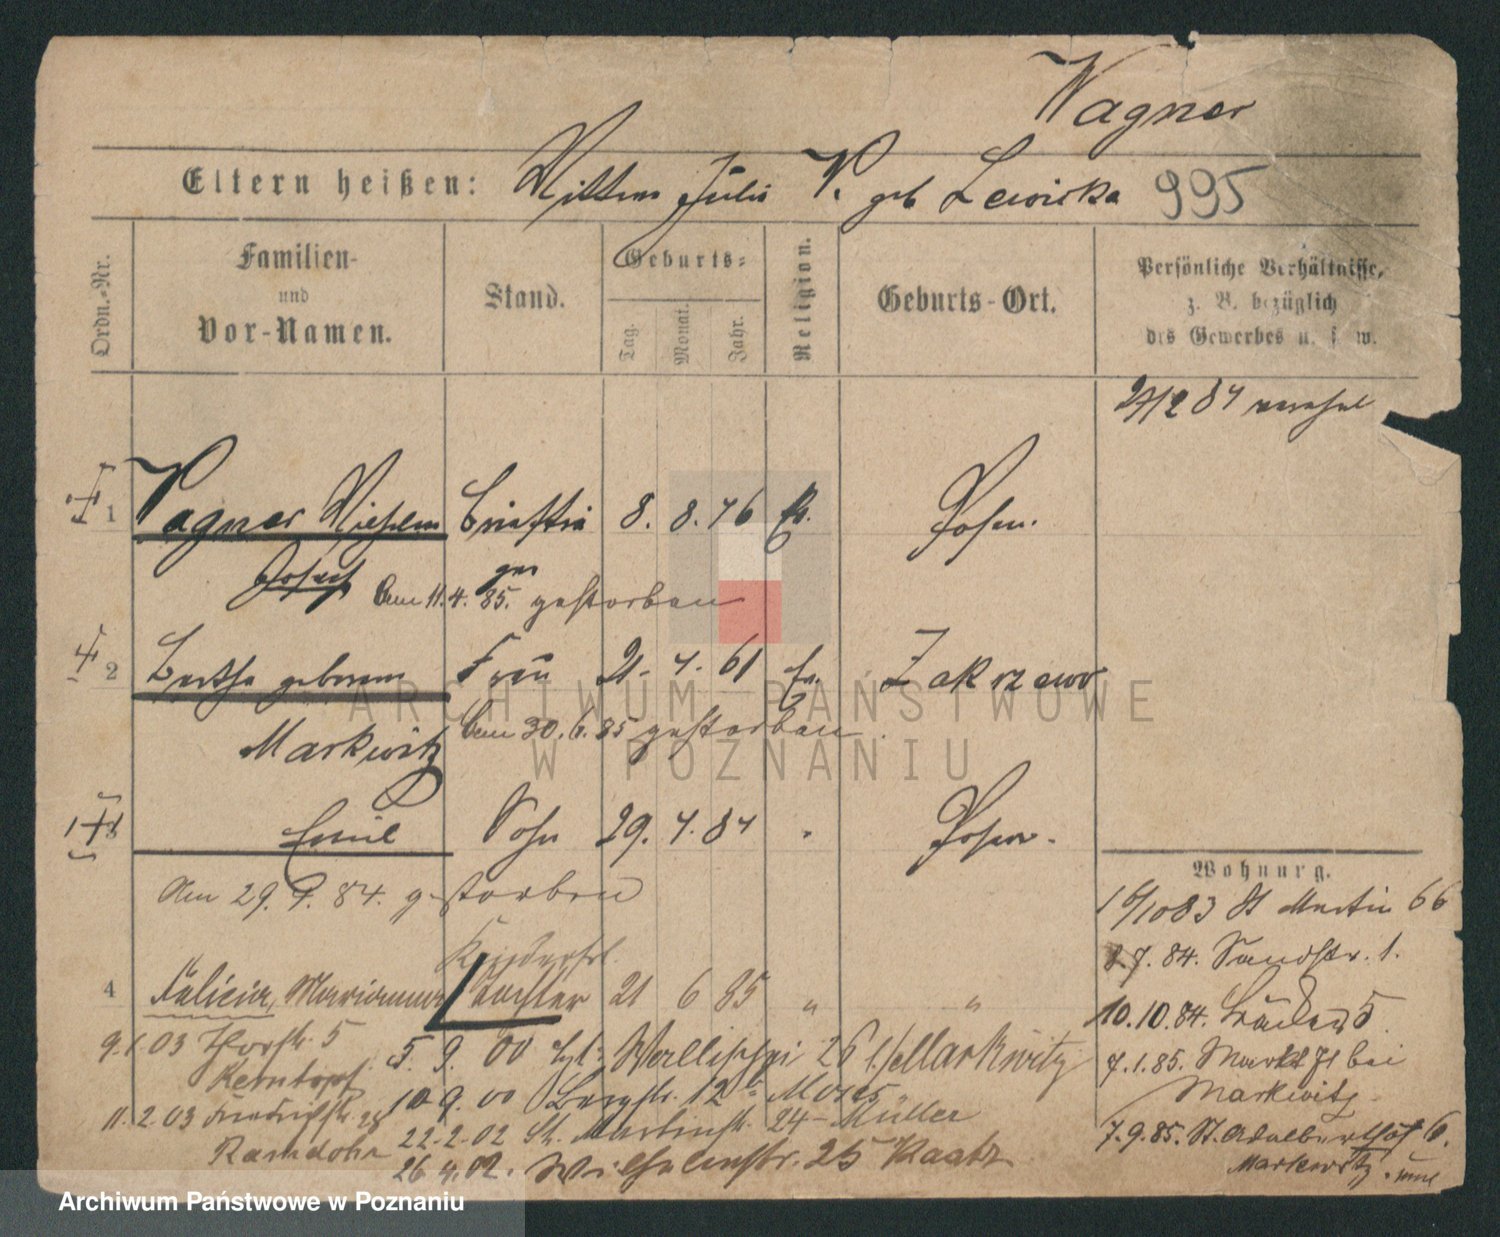 Wagner
Eltern heißen: Wilhem Julie W. geb Lewicka 995
Ordn.-Nr.
Familien-
und
Vor-Namen.
Stand.
Geburts-
Tag.
Monat.
Jahr.
Religion.
Geburts-Ort.
Persönliche Verhältnisse,
z. B. bezüglich
des Gewerbes u. s. w.
27/2 84
1 Wagner Wilhelm 8. 8. 76 Posen.
Josef am 11.4.85. gestorben
2 Bertha geborene Frau 21. 4. 61 Ev. Zakrzewo
Markwitz am 30.6.85 gestorben
3 Emil Sohn 29. 4. 84 Posen.
am 29. 9. 84. gestorben
Kinderfrl.
4 Felicia, Marianna Tochter 21 6 85 " "
Wohnung.
1/10 83 St Martin 66
2.7.84. Sandstr. 1.
10.10.84. 5
7.1.85. Markt 71 bei
Markwitz
7.9.85. St. Adalberthof 6.
Markwitz
9.1.03 Thorstr. 5
11.2.03
Ramdohr
5. 9. 00 Wallischei 26 b/Markwitz
10.9.00 Bergstr. 12b Moses
22.2.02 St. Martinstr. 24 - Müller
26.4.02. Wilhelmstr. 25 Kaatz
ARCHIWUM PAŃSTWOWE
W POZNANIU
Archiwum Państwowe w Poznaniu